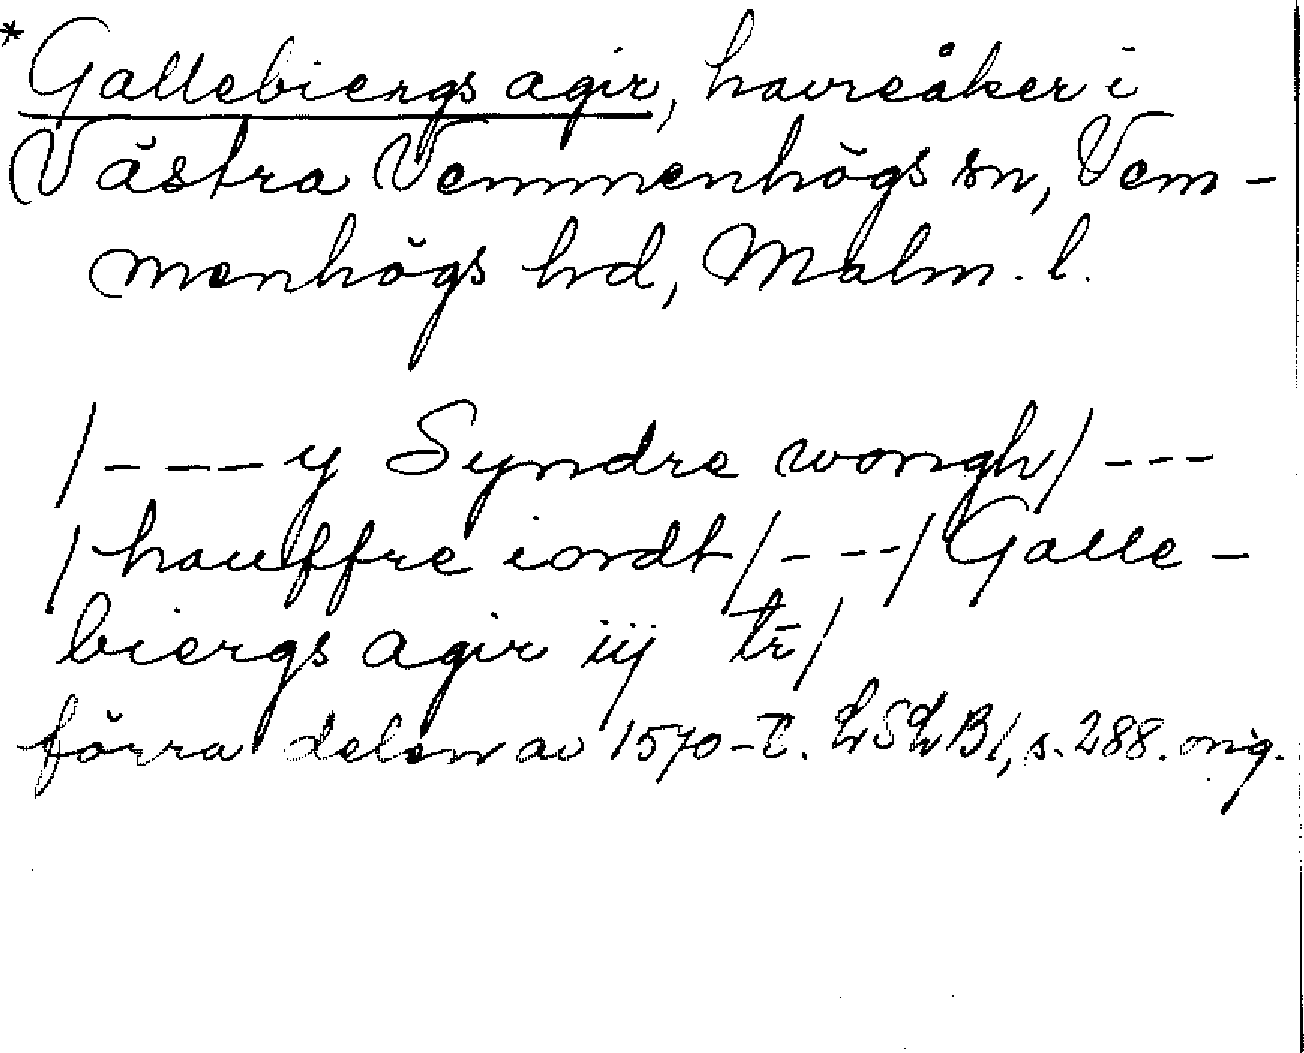 *Gallebiergs agir, havreåker i
Västra Vemmenhögs sn, Vem-
menhögs hd, Malm. l.
/---y Syndre wongh/---
/hauffre iordt/---/Galle-
biergs agir iij tr̄/
förra delen av 1570-t. LSLB1, s. 288. orig.